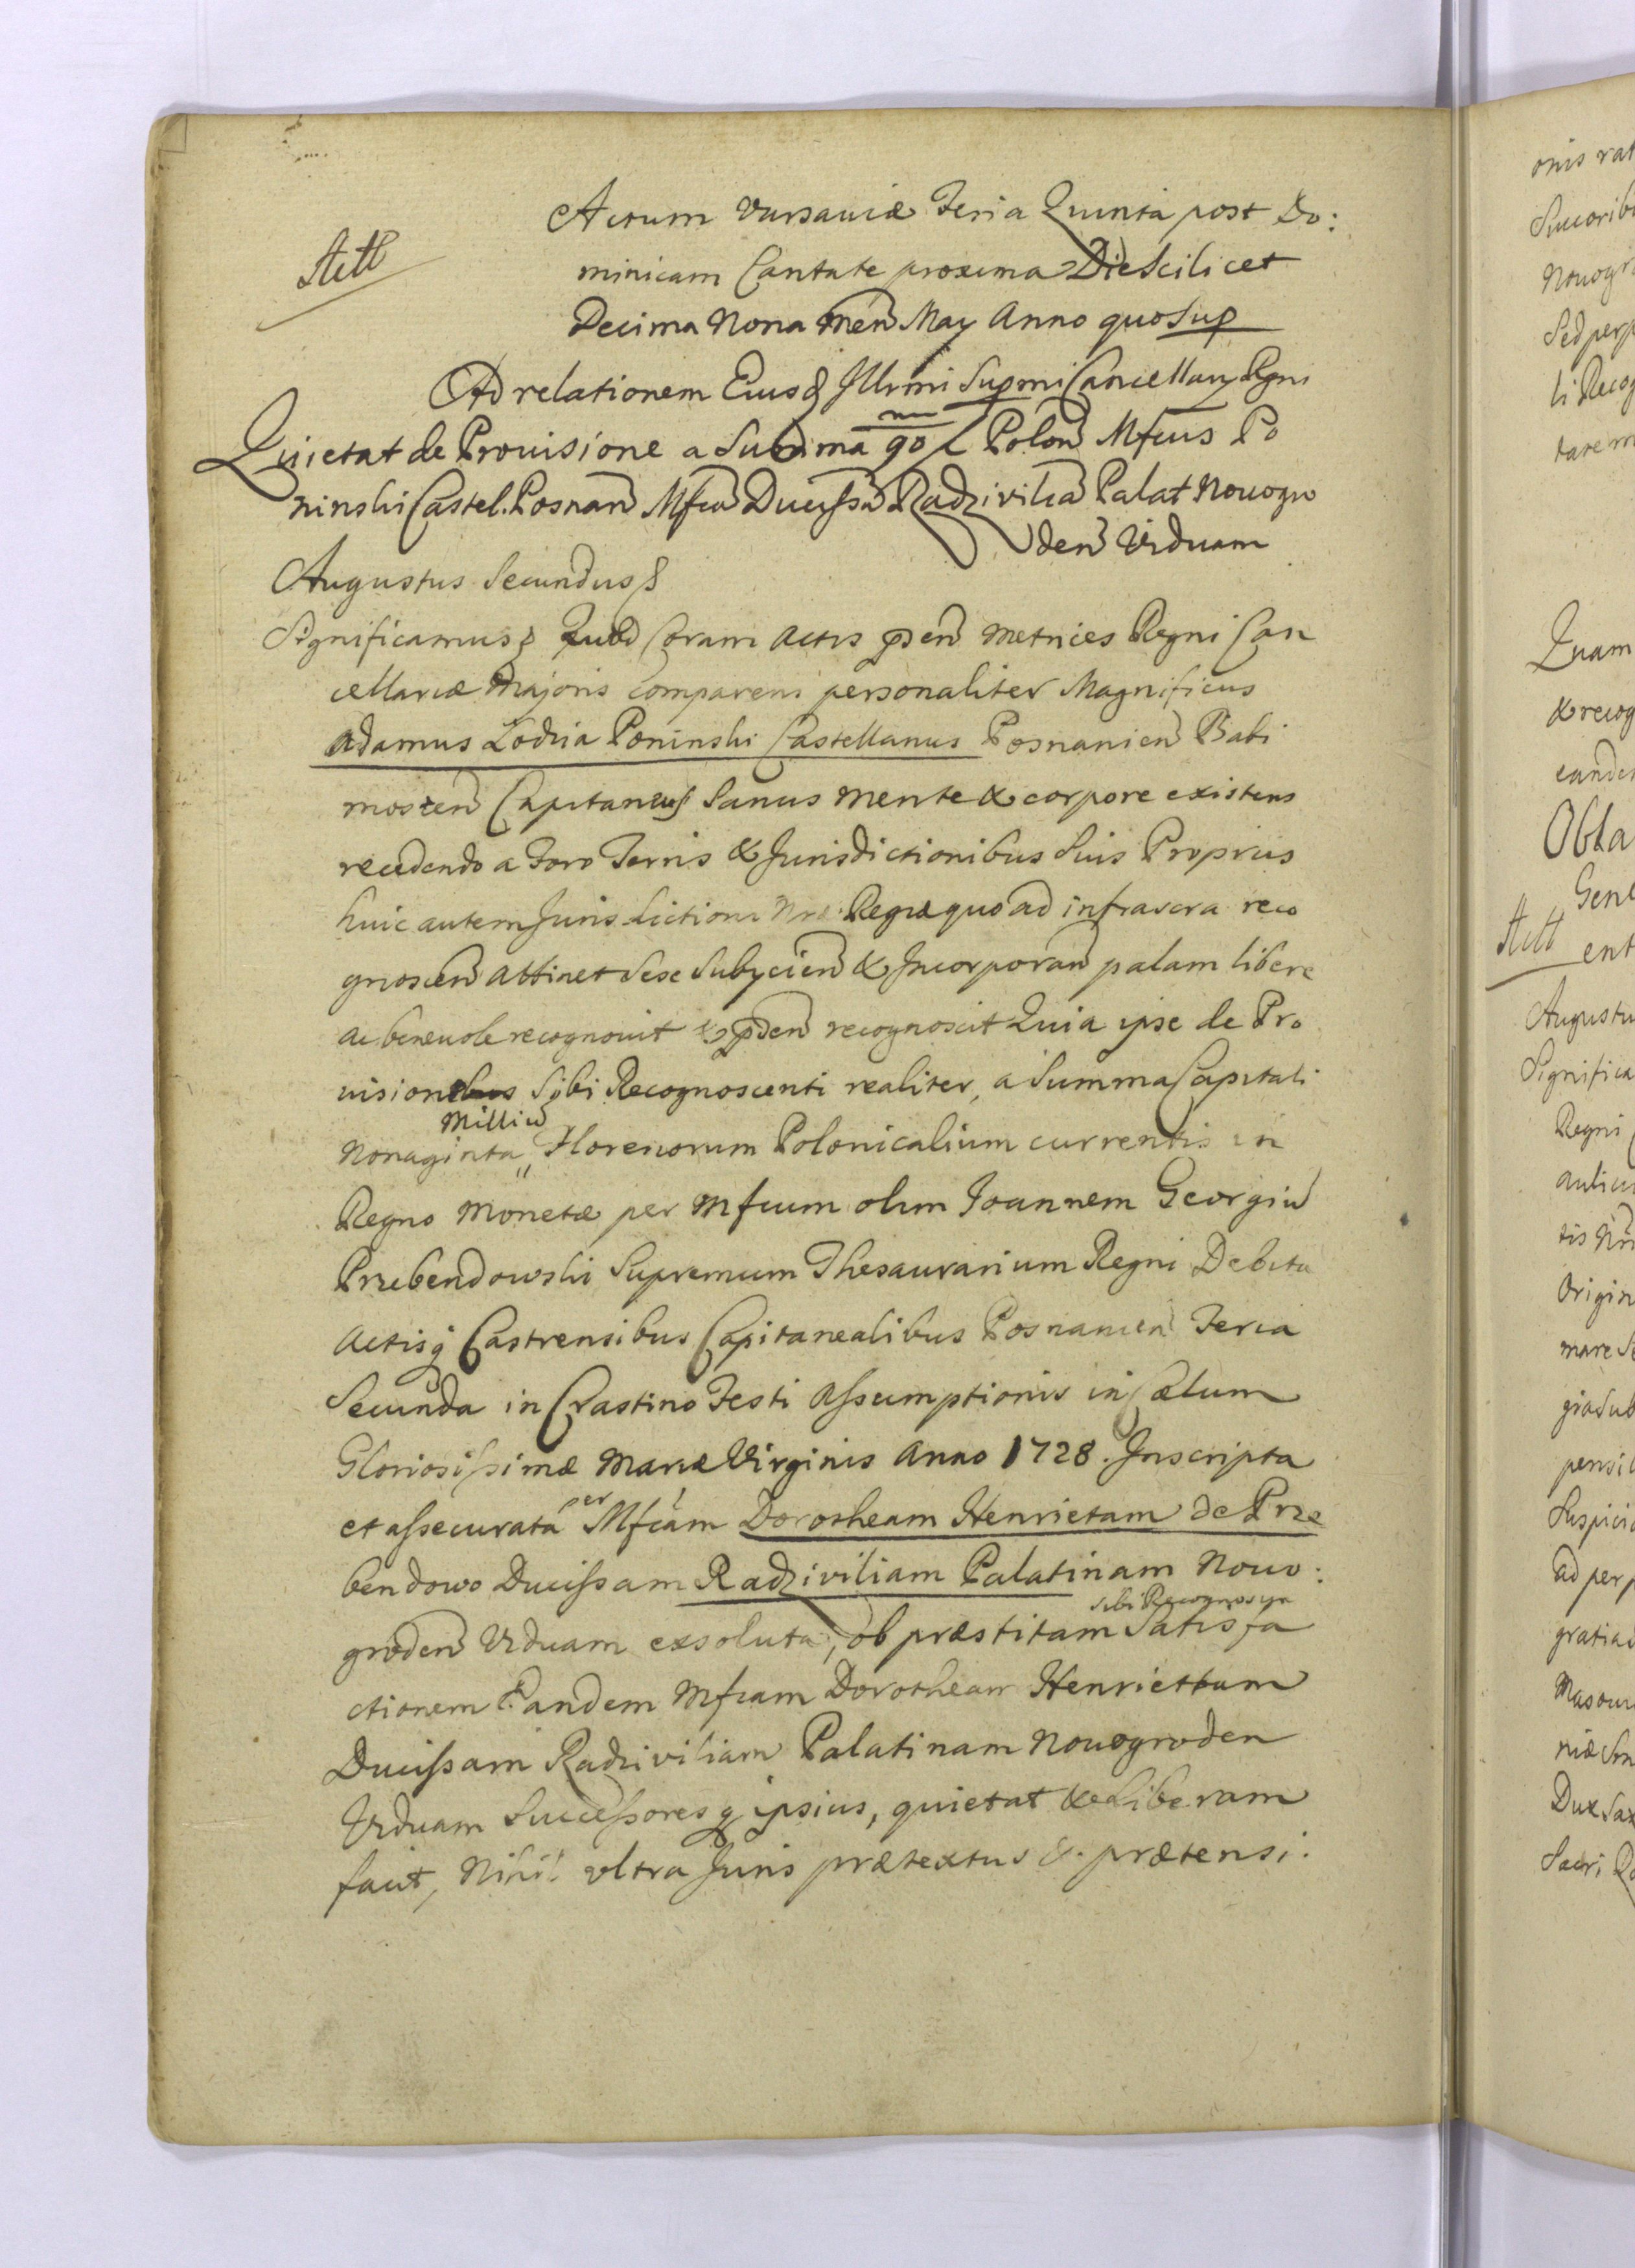 Actum Varsaviæ Feria Quinta post Do:
minicam Cantate proxima Die Scilicet
Decima Nona Men May Anno quo Sup
Ad relationem Eiusd Illrmi Supmi Cancellary Rgni
Quietat de Provisione a Summa 90 m Polon Mfcus Po
ninski Castel. Posnan Mfca Ducissa Radzivilia Palat Novogro
den Viduam
Augustus Secundus
Significamus Quod Coram Actis pden Metrices Regni Can
cellariæ Majoris Comparens personaliter Magnificus
Adamus Lodzia Poninski Castellanus Posnanien Babi
mosten Capitaneus Sanus mente & corpore existens
recedendo a Foro Terris & Jurisdictionibus Suis Proprius
huic autem Jurisdictioni Nræ Regiæ quo ad infrascra reco
gnoscen attinet Sese Subycien & Incorporan palam libere
ac benevole recognovit & pden recognoscit Quia ipse de Pro
vision Sibi Recognoscenti realiter, a Summa Capitali
Nonaginta „ Milliu Florenorum Polonicalium currentis in
Regno Monetæ per Mfcum olim Joannem Georgiu
Przebendowski Supremum Thesaurarium Regni Debita
Actisq Castrensibus Capitanealibus Posnanien Feria
Secunda in Crastino Festi Assumptionis in Cælum
Gloriosissimæ Mariæ Virginis Anno 1728. Inscripta
et assecurata per Mfcam Dorotheam Henrietam de Prze
bendowo Ducissam Radziviliam Palatinam Novo:
groden Viduam exsoluta, ob præstitam sibi Recognoscen Satisfa
ctionem Eandem Mfcam Dorotheam Henriettam
Ducissam Radziviliam Palatinam Novogroden
Viduam Successoresq ipsius, quietat & Liberam
facit, Nihil ultra Juris prætextus & prætensi.